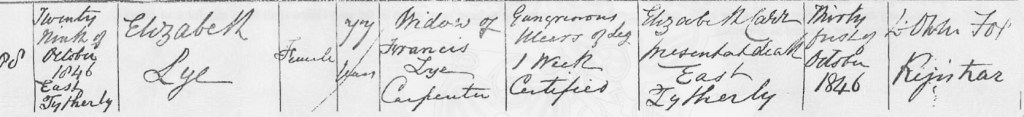 98
Twenty
Ninth of
October
1846
East
Tytherly
Elizabeth
Lye
Female
77
Years
Widow of
Francis
Lye
Carpenter
Gangrenous
Ulcers of Leg
1 Week
Certified
Elizabeth Carr
Present at death
East
Tytherly
Thirty
first of
October
1846
Owen Fox
Registrar